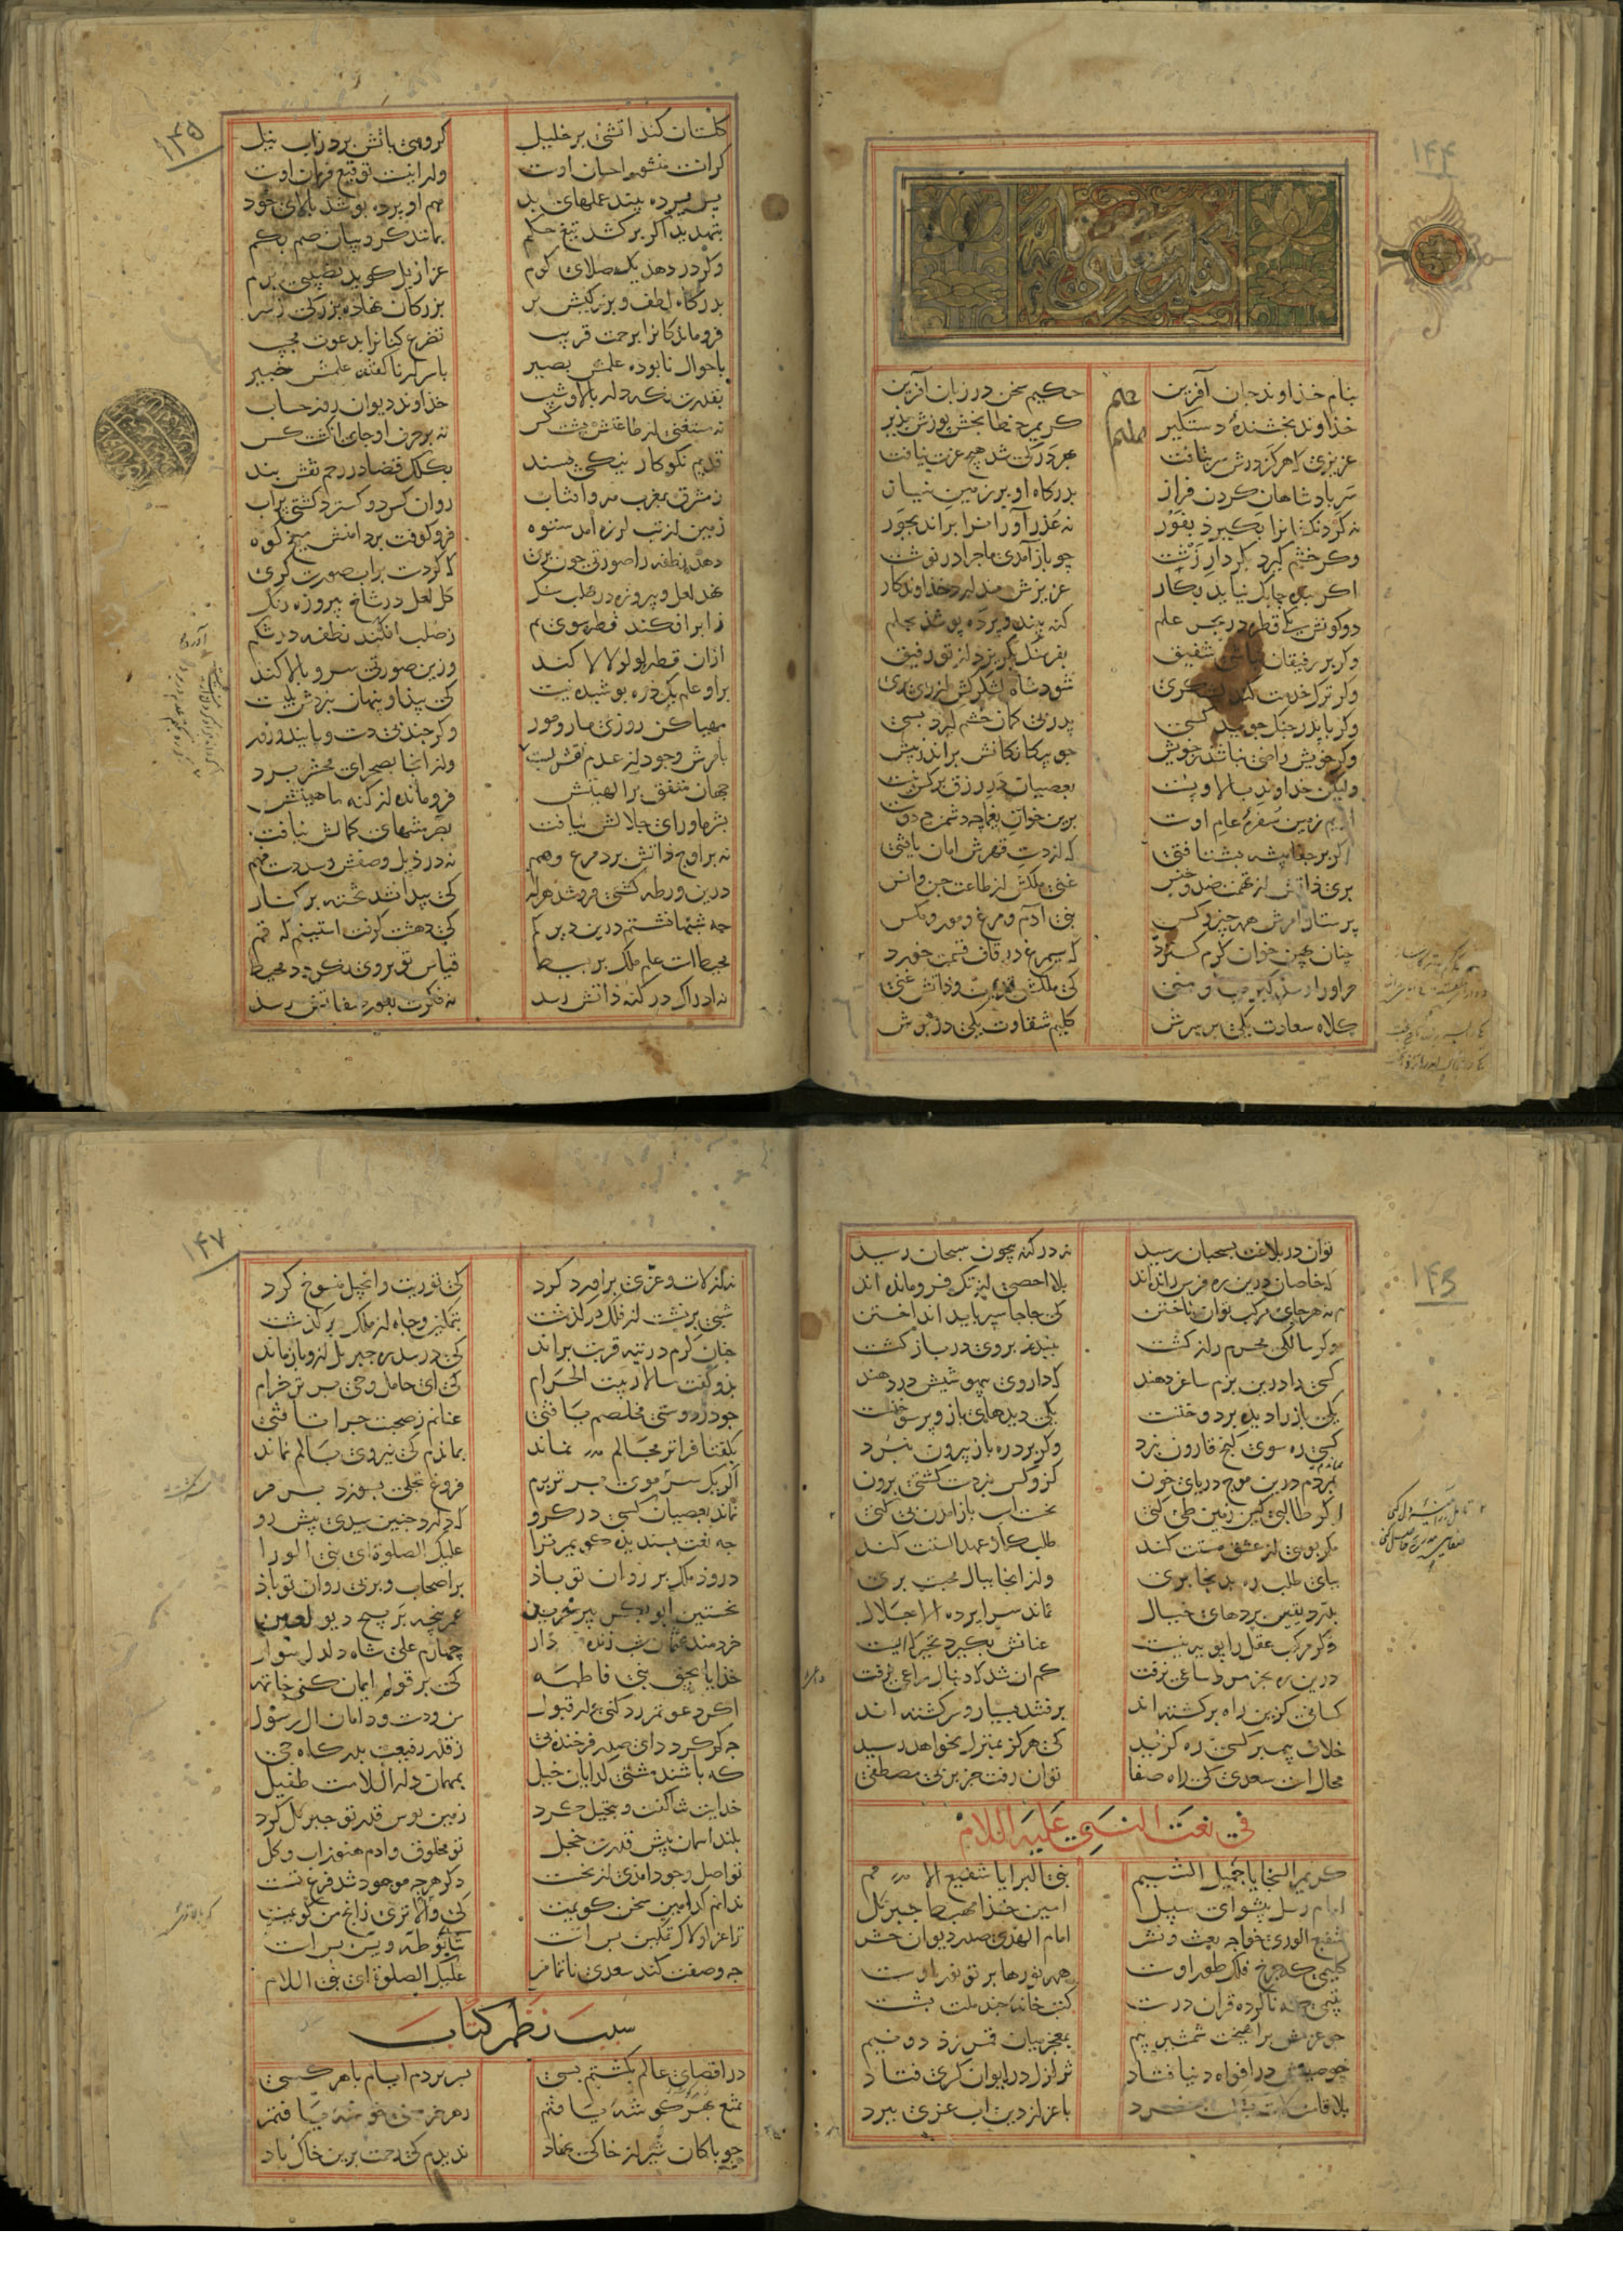 کتاب سعدی نامه
بنام خذاوند جان آفرین حکیم سخن در زبان آفرین
خذاوند بخشندهٔ دستگیر کریم خطا بخش پوزش پذیر
عزیزی که هرکز درش سر بتافت بهر در که شد هیچ عزت نیافت
سر پادشاهان کردن فراز بدرکاه او بر زمین نیاز
نه کردنکشانرا بکیرد بفور نه عذر آورانرا براند بجور
وکر خشم کیرد بکردار زشت چو باز آمدی ماجرا در نوشت
اکر بنده چابک نیاید بکار عزیزش ندارد خذاوندکار
دو کونش یکی قطره در بحر علم کنه بیند و پرده پوشذ بحلم
وکر بر رفیقان نباشی شفیق بفرسنک بکریزد از تو رفیق
وکر ترک خدمت کند لشکری شود شاه لشکرکش از وی بری
وکر با پدر جنک جوید کسی پدر بی کمان خشم کیرد بسی
وکر خویش راضی نباشد ز خویش چو بیکانکانش براند ز پیش
ولیکن خداوند بالا و پست بعصیان در رزق بر کس نبست
ادیم زمین سفرهٔ عام اوست برین خوان یغما چه دشمن چه دوست
اکر بر جفا پیشه بشتافتی که از دست قهرش امان یافتی
بری ذاتش از تهمت ضد و جنس غنی ملکش از طاعت جن و انس
پرستار امرش همه چیز و کس بنی آدم و مرغ و مور و مکس
چنان پهن خوان کرم کسترد که سیمرغ در قاف قسمت خورد
مر او را رسد کبریا و منی که ملکش قدیمست و ذاتش غنی
کلاه سعادت یکی بر سرش کلیم شقاوت یکی در برش
کلستان کند آتشی بر خلیل کروهی باتش برد ز آب نیل
کر آنست منشور احسان اوست ور اینست توقیع فرمان اوست
پس پرده بیند عملهای بد هم او پرده پوشد بالای خود
بتهدید اکر برکشد تیغ حکم بمانند کروبیان صم بکم
وکر در دهد یک صلای کرم عزازیل کوید نصیبی برم
بدرکاه لطف و بزرکیش بر بزرکان نهاده بزرکی ز سر
فروماندکانرا برحمت قریب تضرع کنانرا بدعوت مجیب
باحوال نابوده علمش بصیر باسرار ناکفته علمش خبیر
بقدرت نکهدار بالا و شیب خذاوند دیوان روز حساب
نه مستغنی از طاعتش پشت کس نه بر حرف او جای انکشت کس
قدیم نکوکار نیکی پسند بکلک قضا در رحم نقش بند
ز مشرق بمغرب مه و آفتاب روان کرد و کسترد کیتی بر آب
زمین از تب لرزه آمد ستوه فرو کوفت بر دامنش میخ کوه
دهد نطفه را صورتی چون پری که کردست بر آب صورت کری
نهد لعل و پیروزه در صلب سنک کل لعل در شاخ پیروزه رنک
ز ابر افکند قطره سوی یم ز صلب افکند نطفه در شکم
ازان قطره لولو لالا کند وزین صورتی سرو بالا کند
برو علم یک ذره پوشیده نیست که پیدا و پنهان بنزدش یکیست
مهیا کن روزی مار و مور وکر چند بی دست و پایند و زور
بامرش وجود از عدم نقش بست
وز انجا بصحرای محشر برد
جهان متفق بر الهیتش فرومانده از کنه ماهیتش
بشر ماورای جلالش نیافت بصر منتهای کمالش نیافت
نه بر اوج ذاتش برد مرغ وهم نه در ذیل وصفش رسد دست فهم
درین ورطه کشتی فرو شد هزار که پیدا نشد تخته بر کنار
چه شبها نشستم درین دیر کم که دهشت کرفت آستینم که قم
محیط است علم ملک بر بسیط قیاس تو بر وی نکردد محیط
نه ادراک در کنه ذاتش رسد نه فکرت بغور صفاتش رسد
توان در بلاغت بسحبان رسید نه در کنه بیچون سبحان رسید
که خاصان درین ره فرس رانده اند بلا احصی از تک فرومانده اند
نه هر جای مرکب توان تاختن که جاها سپر باید انداختن
وکر سالکی محرم راز کشت ببندند بر وی در بازکشت
کسی را درین بزم ساغر دهند که داروی بیهوشیش در دهند
یکی باز را دیده بر دوختست یکی دیدهای باز و پر سوختست
کسی ره سوی کنج قارون نبرد وکر برد ره باز بیرون نبرد
بمردم درین موج دریای خون کزو کس نبردست کشتی برون
اکر طالبی کین زمین طی کنی نخست اسب باز آمدن پی کنی
مکر بویی از عشق مستت کند طلب کار عهد الستت کند
بپای طلب ره بدانجا بری وز انجا ببال محبت پری
بدرد یقین پردهای خیال نماند سراپرده الا جلال
دکر مرکب عقل را پویه نیست عنانش بکیرد تحیر که ایست
درین ره بجز مرد ساعی نرفت کم آن شد که دنبال راعی نرفت
کسانی کزین راه برکشته اند برفتند بسیار و سرکشته اند
خلاف پیمبر کسی ره کزید که هرکز بمنزل نخواهد رسید
محال است سعدی که راه صفا توان رفت جز بر پی مصطفی
فی نعت النبی علیه السلام
کریم السجایا جمیل الشیم نبی البرایا شفیع الامم
امام رسل پیشوای سبیل امین خذا مهبط جبرئیل
شفیع الوری خواجه بعث و نشر امام الهدی صدر دیوان حشر
کلیمی که چرخ فلک طور اوست همه نورها پرتو نور اوست
یتیمی که ناکرده قران درست کتب خانه چند ملت بشست
چو عزمش برآهیخت شمشیر بیم بمعجز میان قمر زد دو نیم
چو صیتش در افواه دنیا فتاد تزلزل در ایوان کسری فتاد
بلا قامت لات بشکست خرد باعزاز دین آب عزی ببرد
نه از لات و عزی برآورد کرد که توریت و انجیل منسوخ کرد
شبی بر نشست از فلک در کذشت بتمکین و جاه از ملک بر کذشت
چنان کرم در تیه قربت براند که در سدره جبریل ازو باز ماند
بدو کفت سالار بیت الحرام که ای حامل وحی برتر خرام
چو در دوستی مخلصم یافتی عنانم ز صحبت چرا تافتی
بکفتا فراتر مجالم نماند بماندم که نیروی بالم نماند
اکر یک سر موی برتر پرم فروغ تجلی بسوزد پرم
نماند بعصیان کسی در کرو که دارد چنین سیدی پیش رو
چه نعت پسندیده کویم ترا علیک الصلوة ای نبی الورا
درود ملک بر روان تو باذ بر اصحاب و بر پی روان تو باذ
نخستین ابوبکر پیر مرید عمر پنجه بر پیچ دیو
خردمند عثمان شب زنده دار چهارم علی شاه دلدل سوار
خذایا بحق بنی فاطمه که بر قول ایمان کنی خاتمه
اکر دعوتم رد کنی ور قبول من و دست و دامان آل رسول
چه کم کردد ای صدر فرخنده پی ز قدر رفیعت بدرکاه حی
که باشند مشتی کدایان خیل بمهمان دار السلامت طفیل
خدایت ثنا کفت و تبجیل کرد زمین بوس قدر تو جبریل کرد
بلند آسمان پیش قدرت خجل تو مخلوق و آدم هنوز آب و کل
تو اصل وجود آمدی از نخست دکر هرچه موجود شد فرع تست
ندانم کدامین سخن کویمت که والاتری زانچ من کویمت
ترا عز لولاک تمکین بس است ثنای تو طه و یس بس است
چه وصفت کند سعدی ناتمام علیک الصلوة ای نبی السلام
سبب نظم کتاب
در اقصای عالم بکشتم بسی بسر بردم ایام با هر کسی
تمتع بهر کوشه یافتم ز هر خرمنی خوشه یافتم
چو پاکان شیراز خاکی نهاد ندیدم که رحمت برین خاک باد
۱۴۴
۱۴۵
۱۴۶
۱۴۷